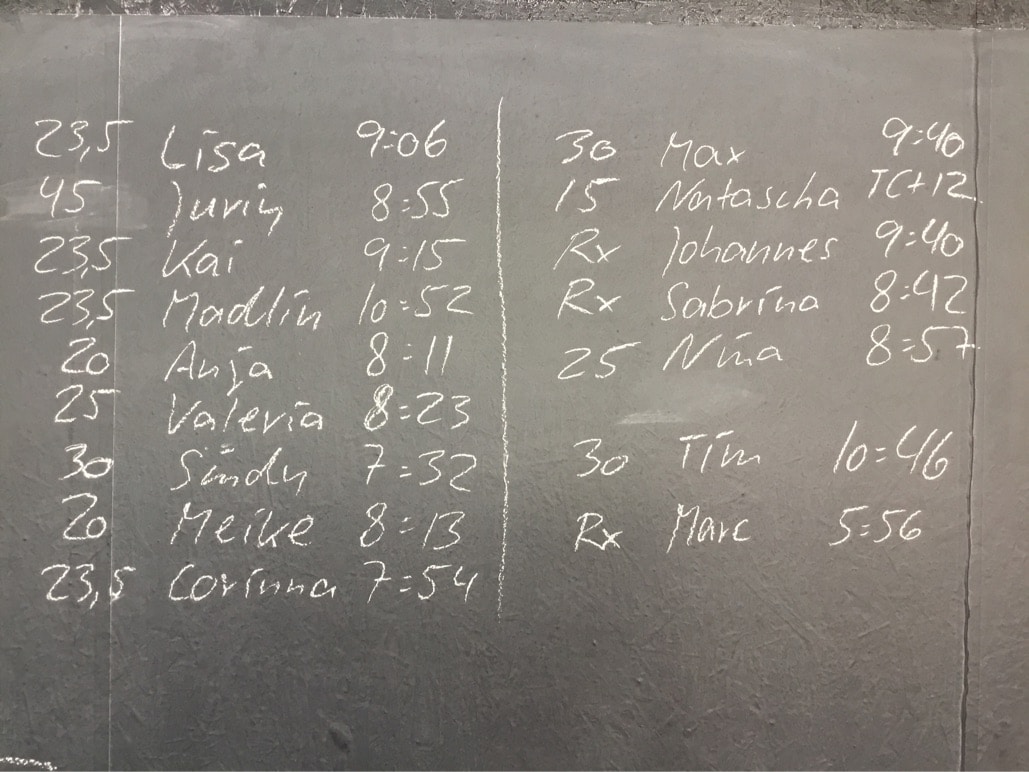 23,5 Lisa 9:06
45 Jurin 8:55
23,5 Kai 9:15
23,5 Madlin 10:52
20 Anja 8:11
25 Valeria 8:23
30 Sindy 7:32
20 Meike 8:13
23,5 Corinna 7:54
30 Max 9:40
15 Natascha TC+12
Rx Johannes 9:40
Rx Sabrina 8:42
25 Nina 8:57
30 Tim 10:46
Rx Marc 5:56